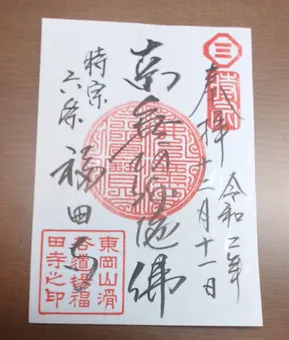 三
奉拝
令和二年
十二月十一日
南無阿弥陀佛
時宗
六条
福田寺
東岡山滑
谷道場福
田寺之印